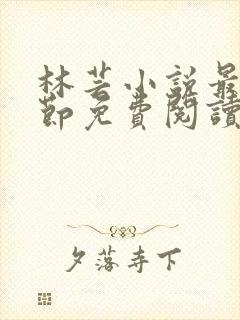 林芸小説最
節免費閱讀
夕落寺下